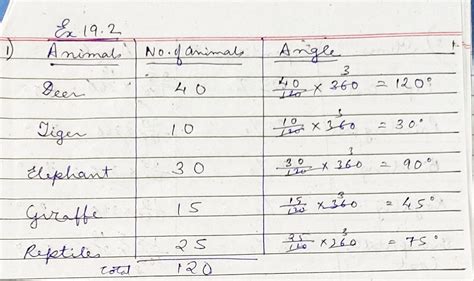 Ex 19.2
1) Animals No. of animals Angle
Deer 40 40/120 × 360 3 = 120°
Tiger 10 10/120 × 360 3 = 30°
Elephant 30 30/120 × 360 3 = 90°
Giraffe 15 15/120 × 360 3 = 45°
Reptiles 25 25/120 × 360 3 = 75°
total 120